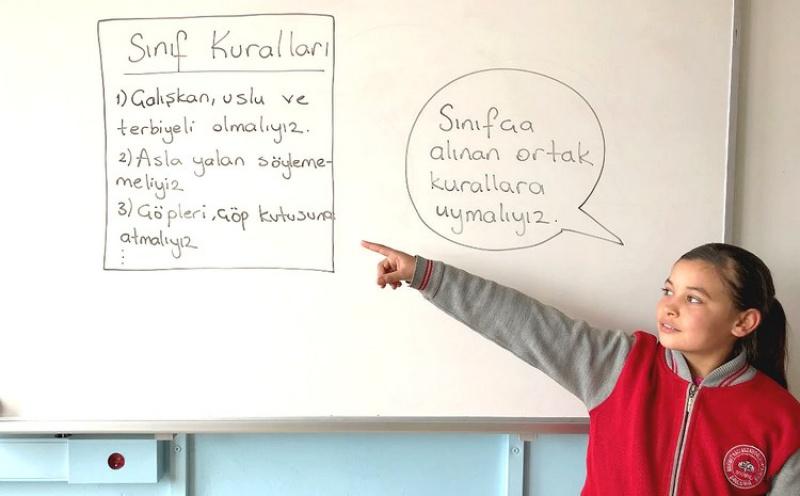 Sınıf Kuralları
1) Çalışkan, uslu ve
terbiyeli olmalıyız.
2) Asla yalan söyleme-
meliyiz
3) Çöpleri, çöp kutusuna
atmalıyız
Sınıfça
alınan ortak
kurallara
uymalıyız.